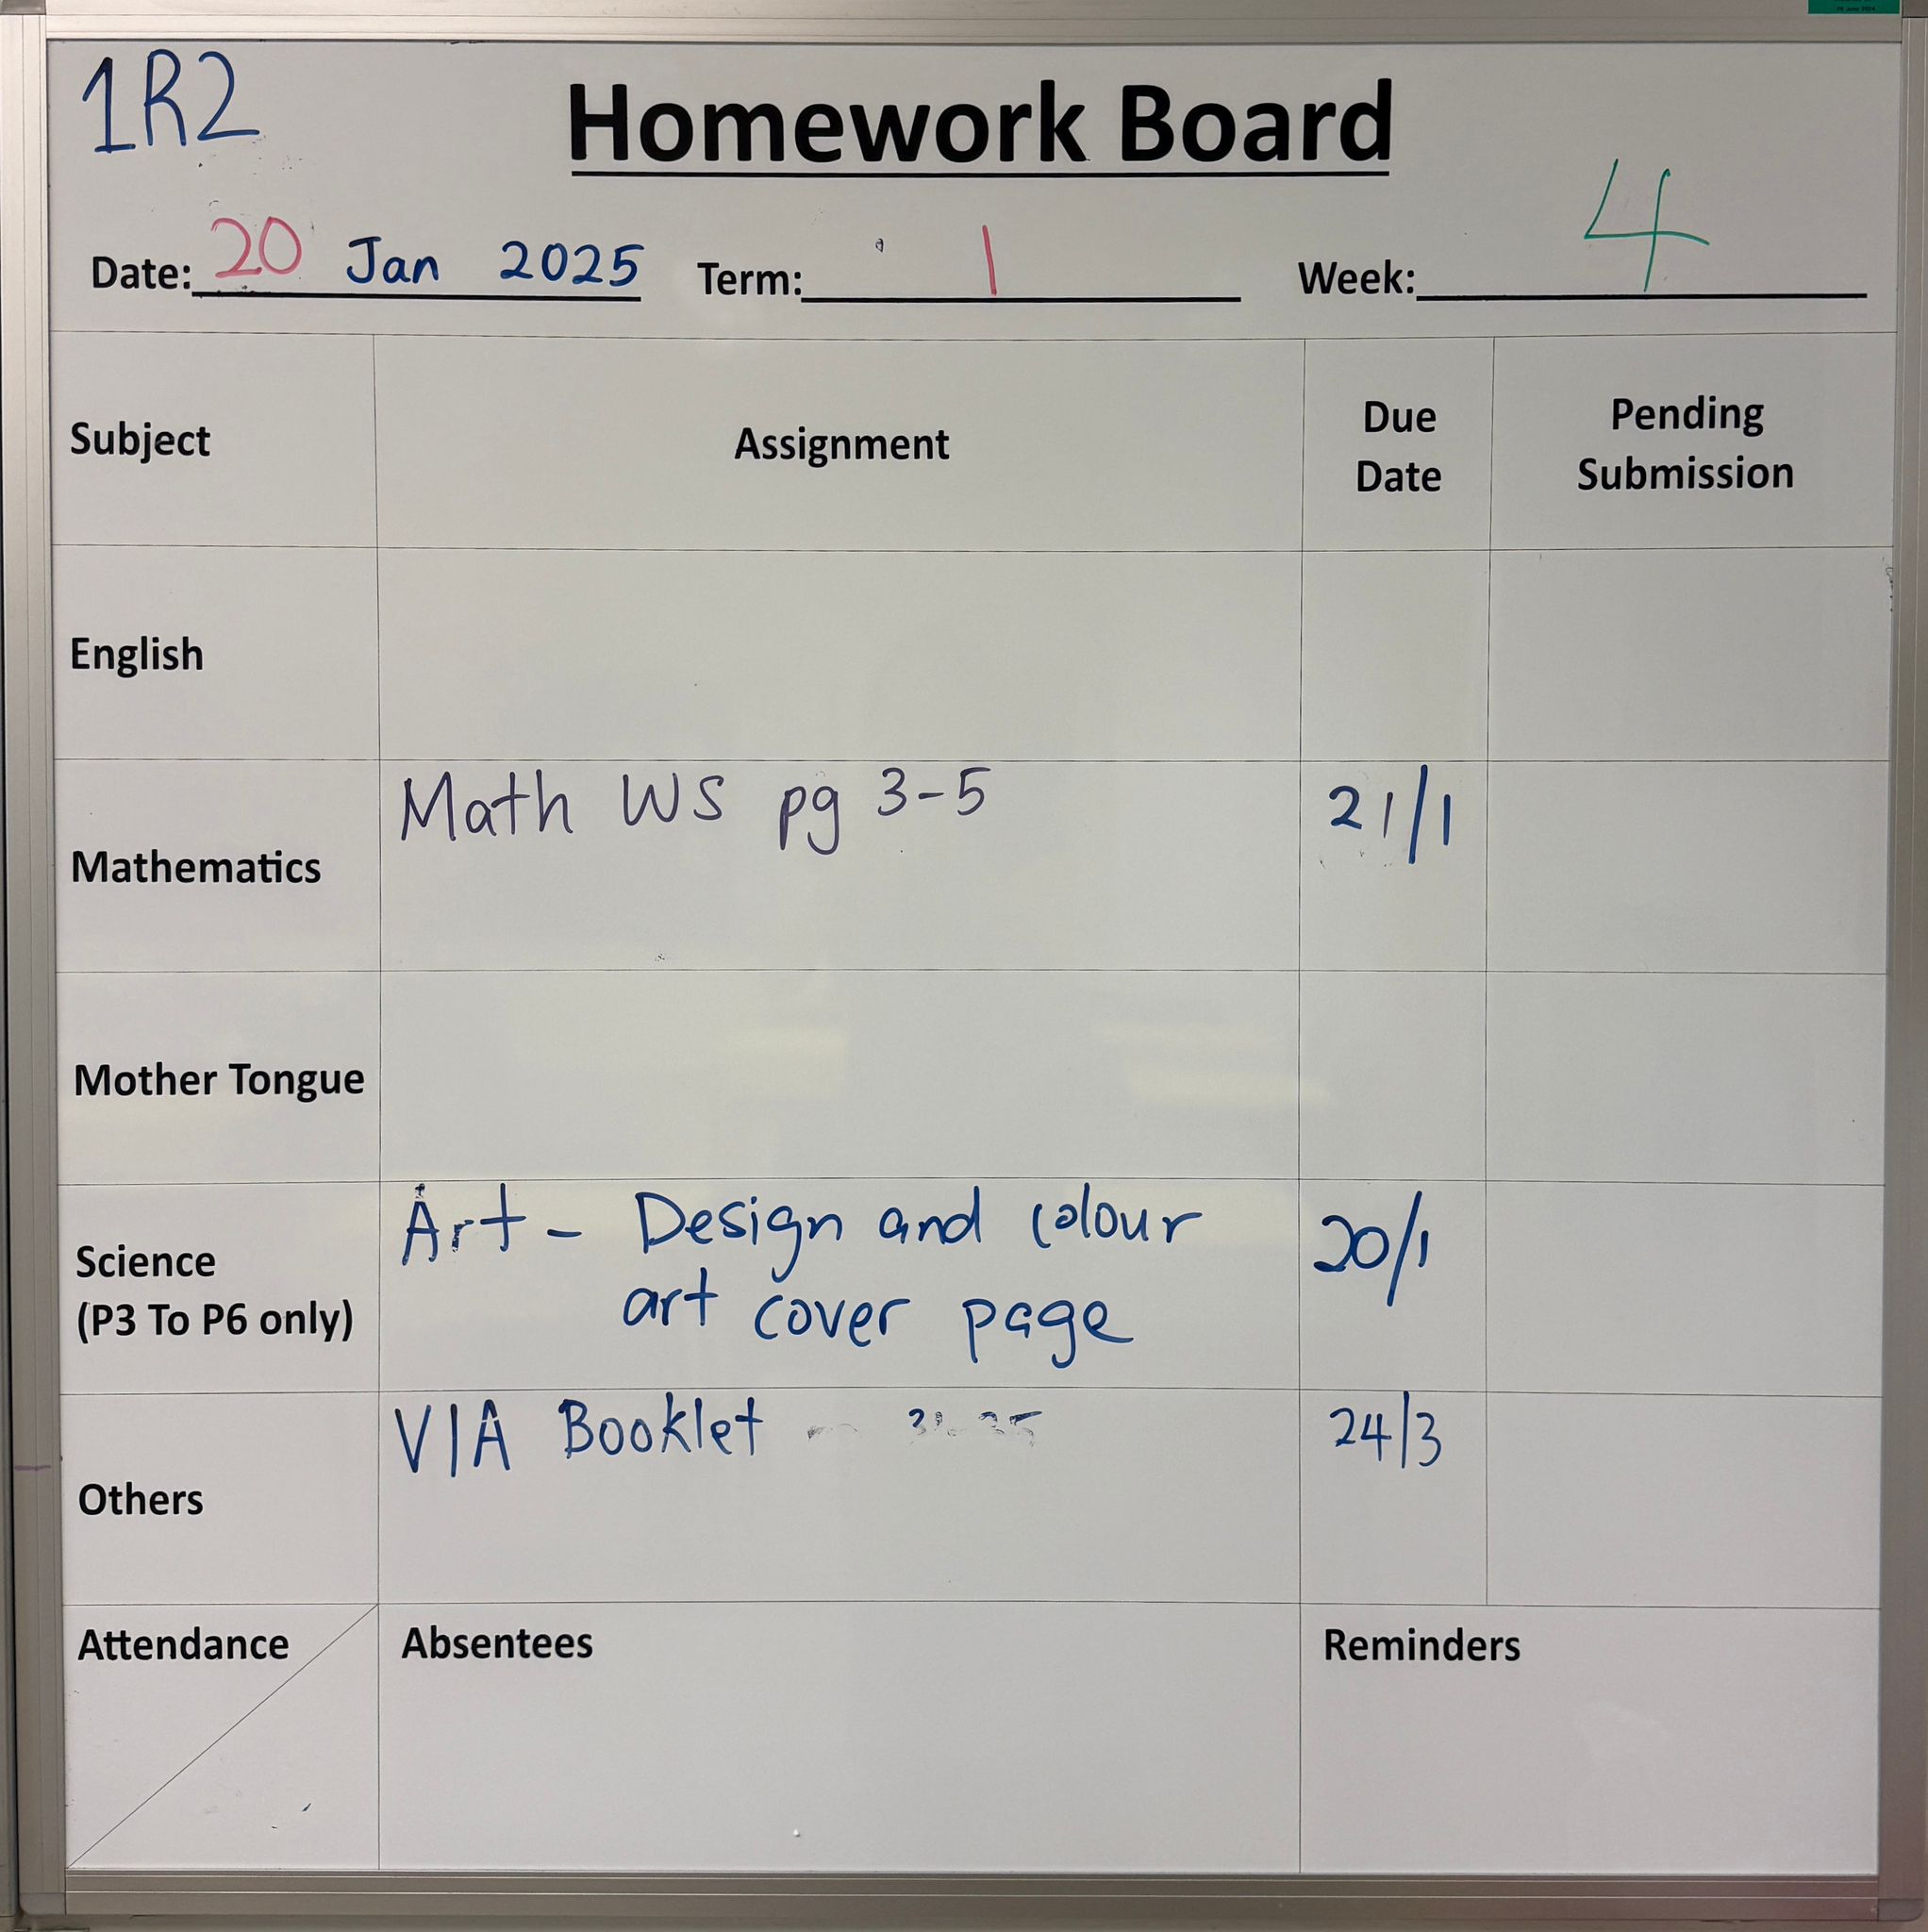 1R2
Homework Board
Date: 20 Jan 2025 Term: 1 Week: 4
Subject Assignment Due Date Pending Submission
English
Mathematics Math WS pg 3-5 21/1
Mother Tongue
Science (P3 To P6 only) Art - Design and colour art cover page 20/1
Others VIA Booklet 24/3
Attendance Absentees Reminders